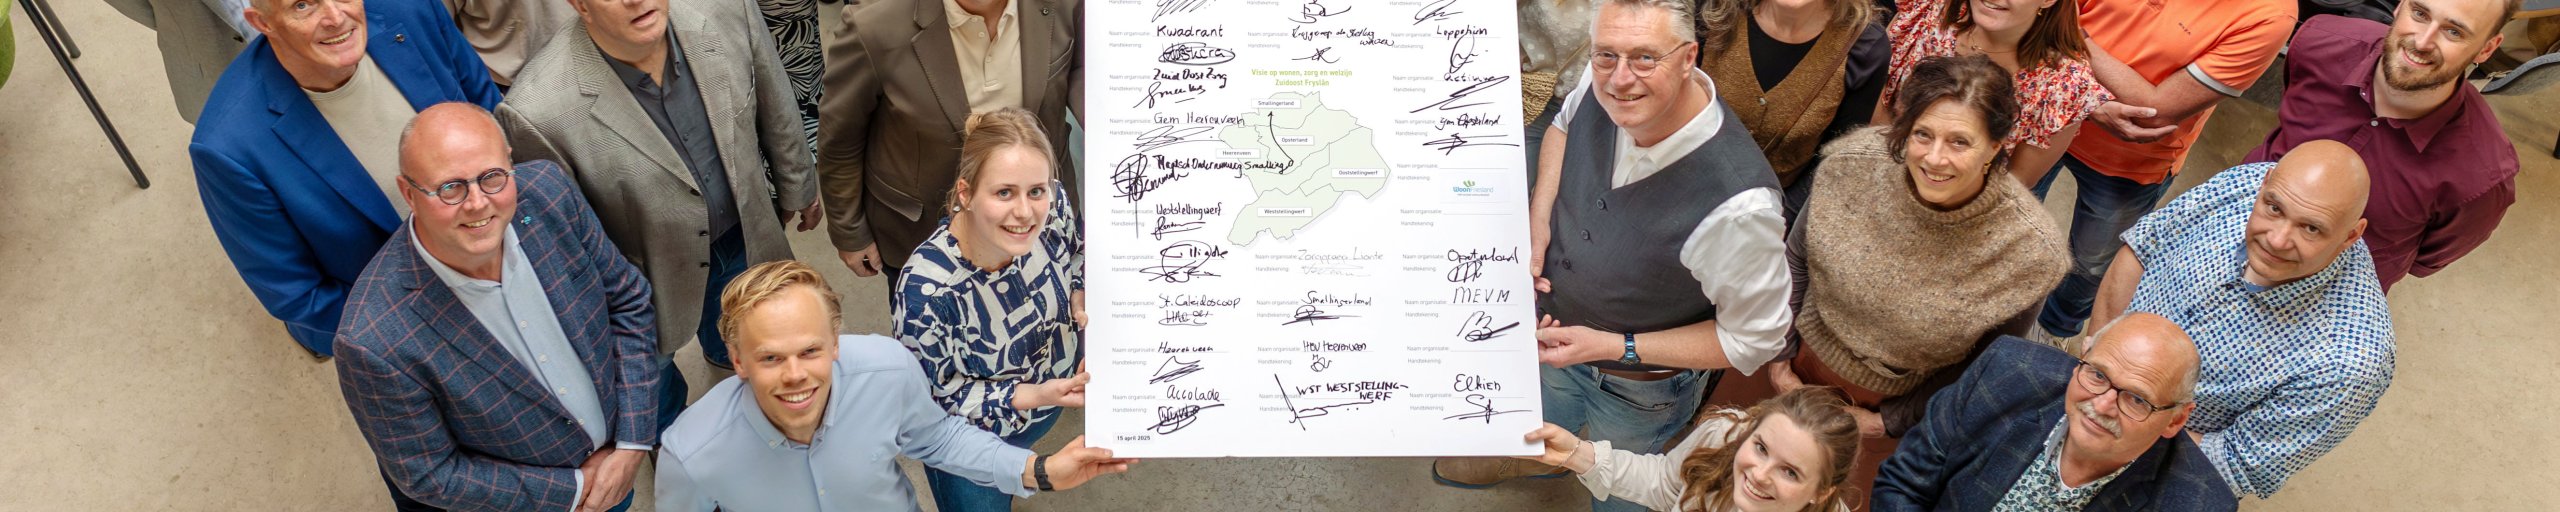 Handtekening:
Handtekening:
Handtekening:
Naam organisatie: Kwadrant
Handtekening:
Naam organisatie:
Handtekening:
Naam organisatie: Loppehiim
Handtekening:
Naam organisatie: Zuid Oost Zorg
Handtekening:
Visie op wonen, zorg en welzijn
Zuidoost Fryslân
Naam organisatie:
Handtekening:
Smallingerland
Opsterland
Heerenveen
Ooststellingwerf
Weststellingwerf
Naam organisatie: Gem Heerenveen
Handtekening:
Naam organisatie: Gem Opsterland
Handtekening:
Smalling
Naam organisatie:
Handtekening:
WoonFriesland
Naam organisatie: Weststellingwerf
Handtekening:
Naam organisatie:
Handtekening:
Naam organisatie:
Handtekening:
Naam organisatie: Zorggroep Liante
Handtekening:
Naam organisatie: Opsterland
Handtekening:
Naam organisatie: St. Caleidoscoop
Handtekening:
Naam organisatie: Smallingerland
Handtekening:
Naam organisatie: MEVM
Handtekening:
Naam organisatie: Heerenveen
Handtekening:
Naam organisatie: HBV Heerenveen
Handtekening:
Naam organisatie:
Handtekening:
Naam organisatie: Accolade
Handtekening:
Naam organisatie: WST WESTSTELLING-
WERF
Handtekening:
Naam organisatie: Elkien
Handtekening:
15 april 2025